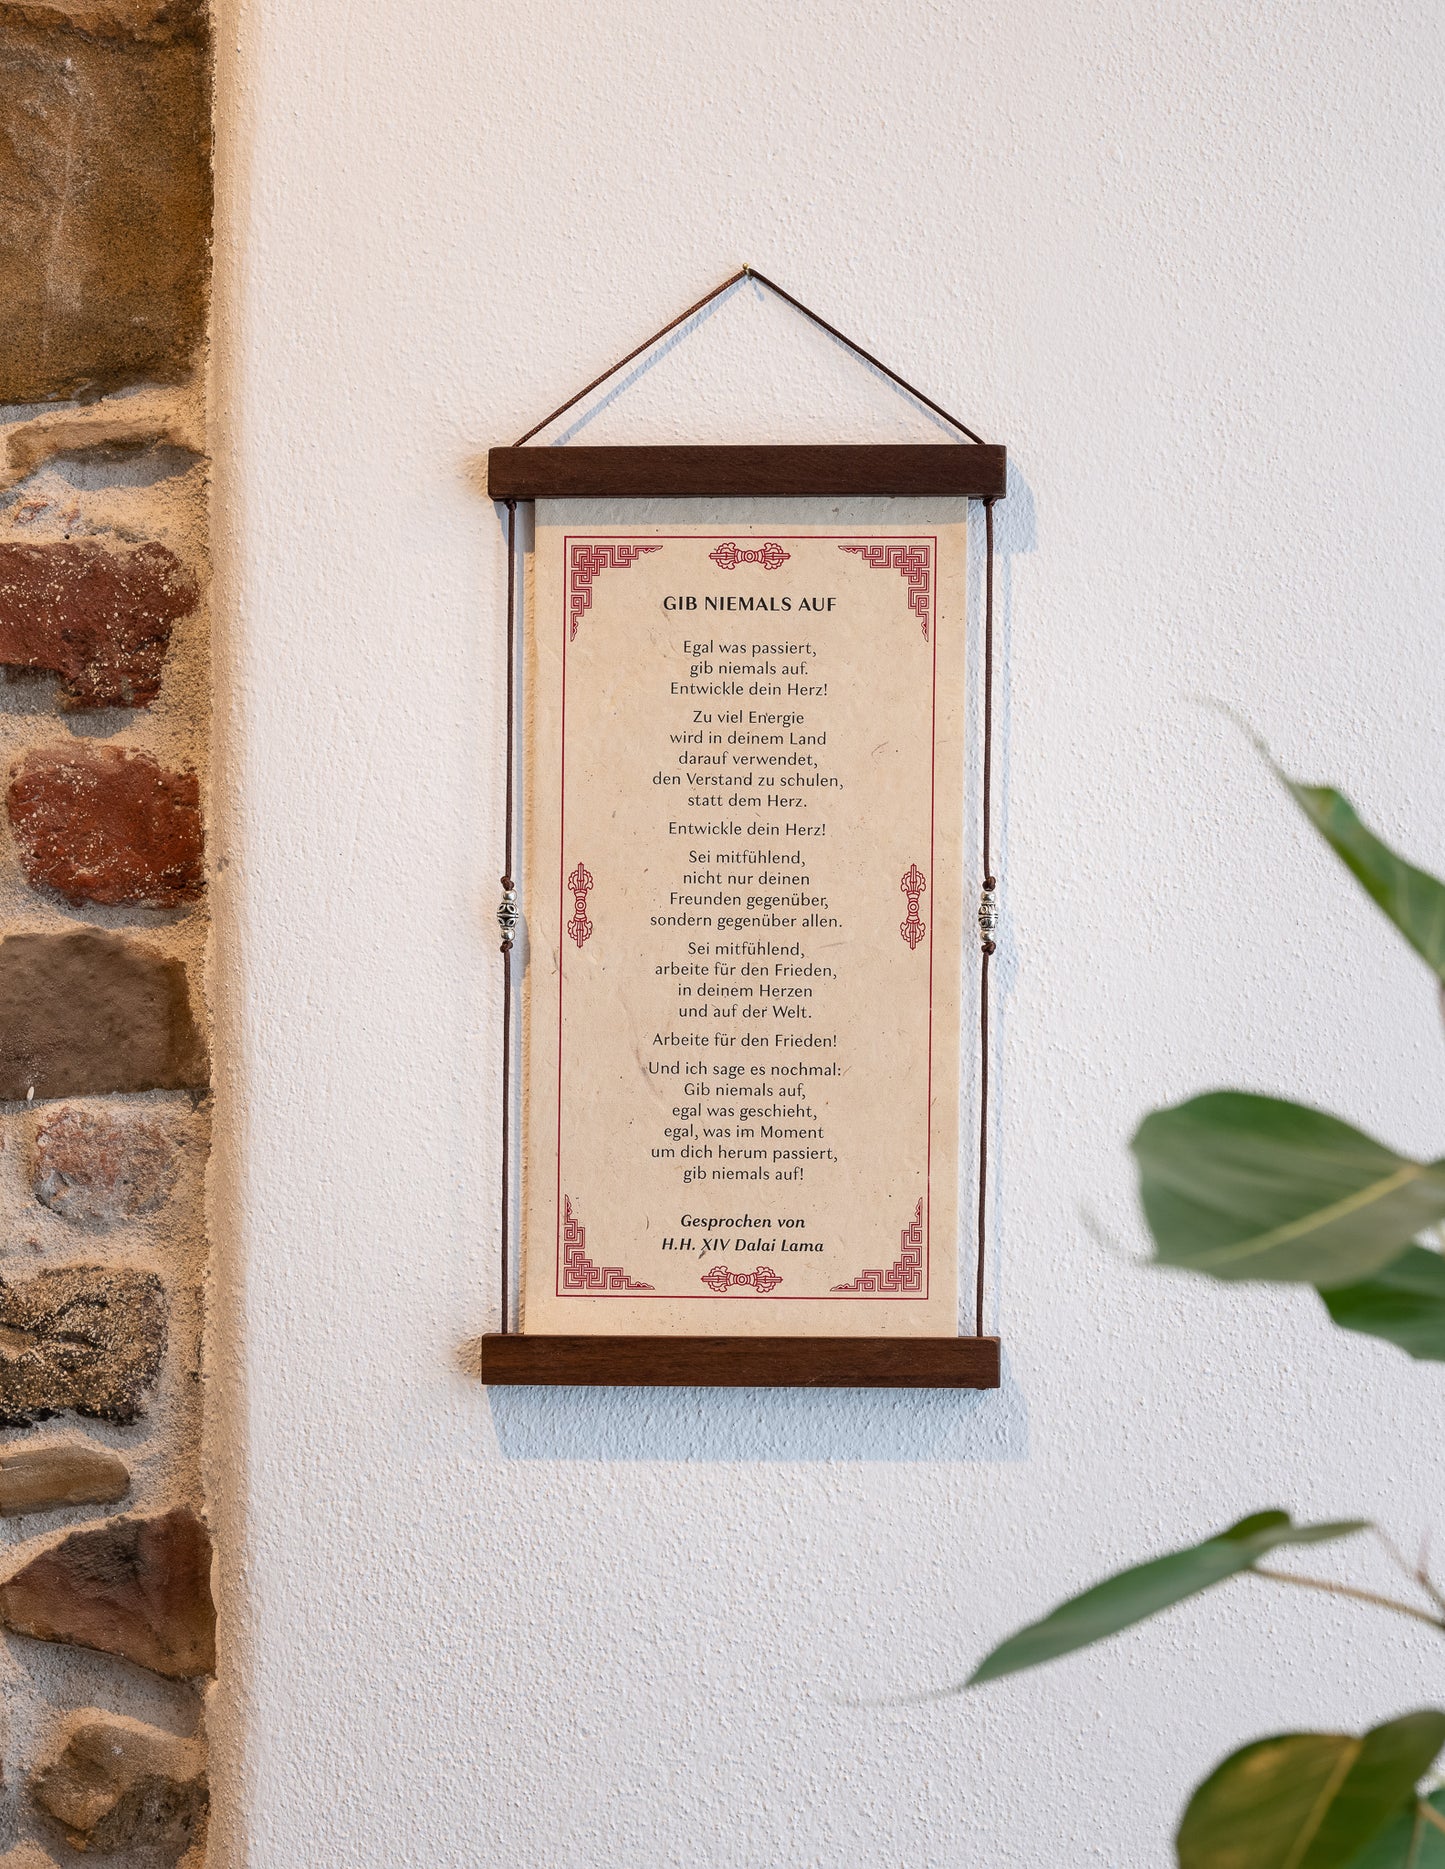 GIB NIEMALS AUF
Egal was passiert,
gib niemals auf.
Entwickle dein Herz!
Zu viel Energie
wird in deinem Land
darauf verwendet,
den Verstand zu schulen,
statt dem Herz.
Entwickle dein Herz!
Sei mitfühlend,
nicht nur deinen
Freunden gegenüber,
sondern gegenüber allen.
Sei mitfühlend,
arbeite für den Frieden,
in deinem Herzen
und auf der Welt.
Arbeite für den Frieden!
Und ich sage es nochmal:
Gib niemals auf,
egal was geschieht,
egal, was im Moment
um dich herum passiert,
gib niemals auf!
Gesprochen von
H.H. XIV Dalai Lama